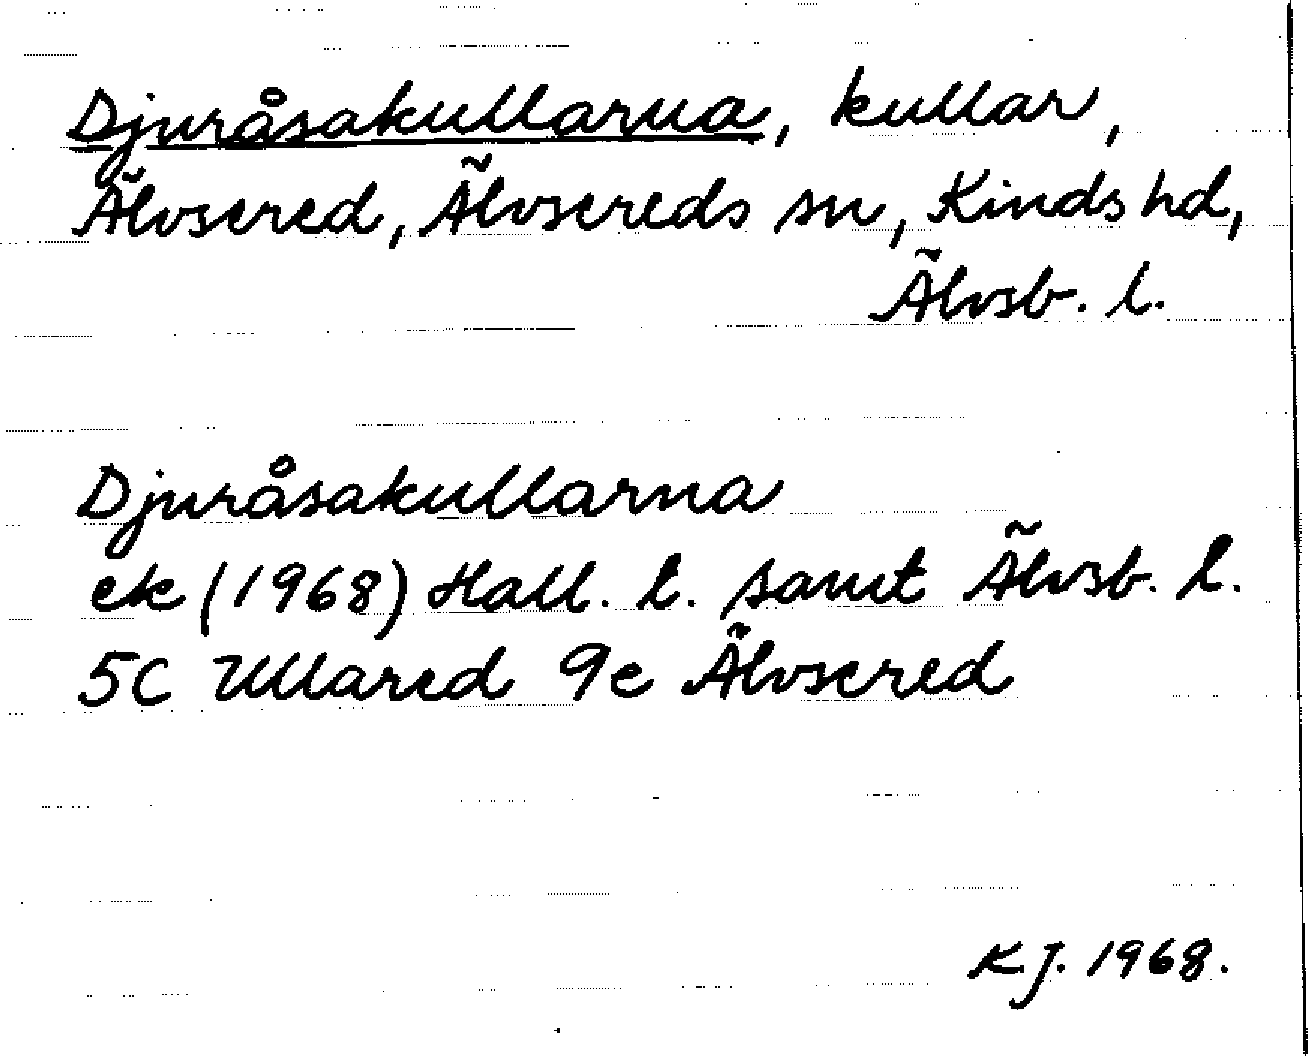 Djuråsakullarna, kullar,
Älvsered, Älvsereds sn, Kinds hd,
Älvsb. l.
Djuråsakullarna
ek (1968) Hall. l. samt Älvsb. l.
5C Ullared 9e Älvsered
K.J. 1968.